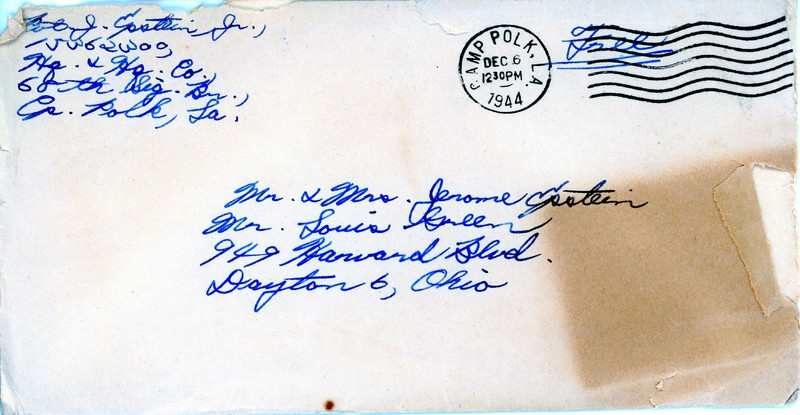 J. Epstein Jr.,
Hq. & Hq. Co.,
68th Sig. Bn.,
Cp. Polk, La.
CAMP POLK, LA.
DEC 6
1230PM
1944
Free
Mr. & Mrs. Jerome Epstein
Mr. Louis Green
949 Harvard Blvd.
Dayton 6, Ohio